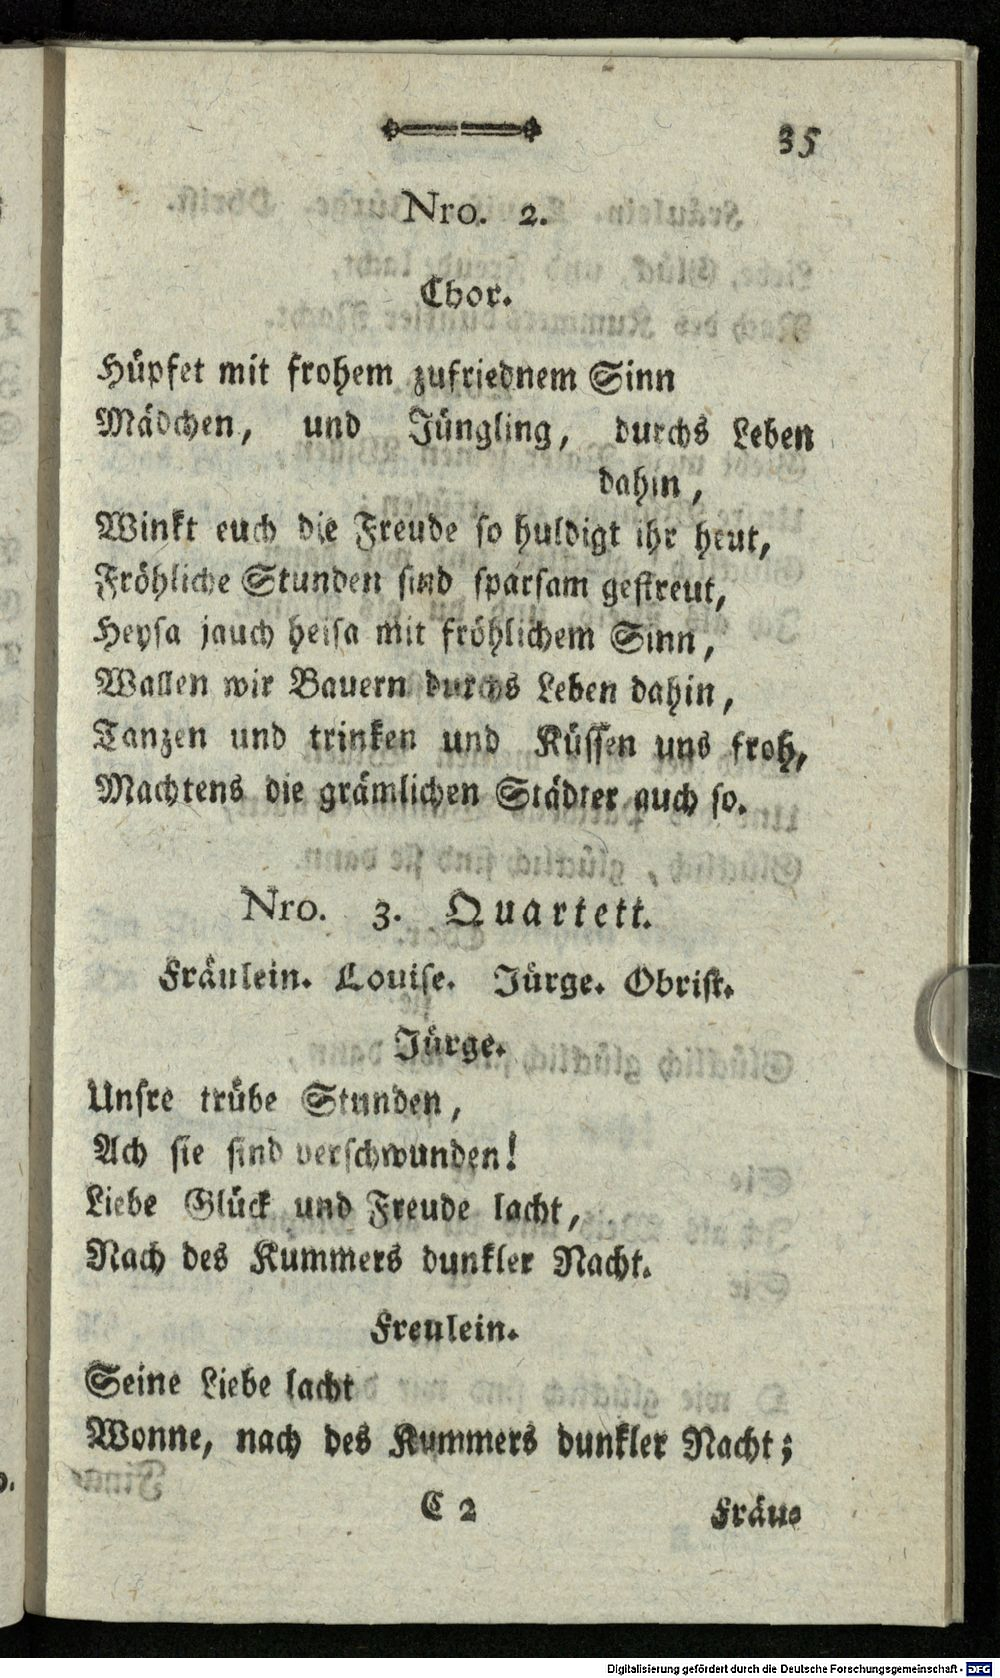 35
Nro. 2.
Chor.
Hüpfet mit frohem zufriednem Sinn
Mädchen, und Jüngling, durchs Leben
dahin,
Winkt euch die Freude so huldigt ihr heut,
Fröhliche Stunden sind sparsam gestreut,
Heysa jauch heisa mit fröhlichem Sinn,
Wallen wir Bauern durchs Leben dahin,
Tanzen und trinken und Küssen uns froh,
Machtens die grämlichen Städter auch so.
Nro. 3. Quartett.
Fräulein. Louise. Jürge. Obrist.
Jürge.
Unsre trübe Stunden,
Ach sie sind verschwunden!
Liebe Glück und Freude lacht,
Nach des Kummers dunkler Nacht.
Freulein.
Seine Liebe lacht
Wonne, nach des Kummers dunkler Nacht;
C 2 Fräu-
Digitalisierung gefördert durch die Deutsche Forschungsgemeinschaft - DFG